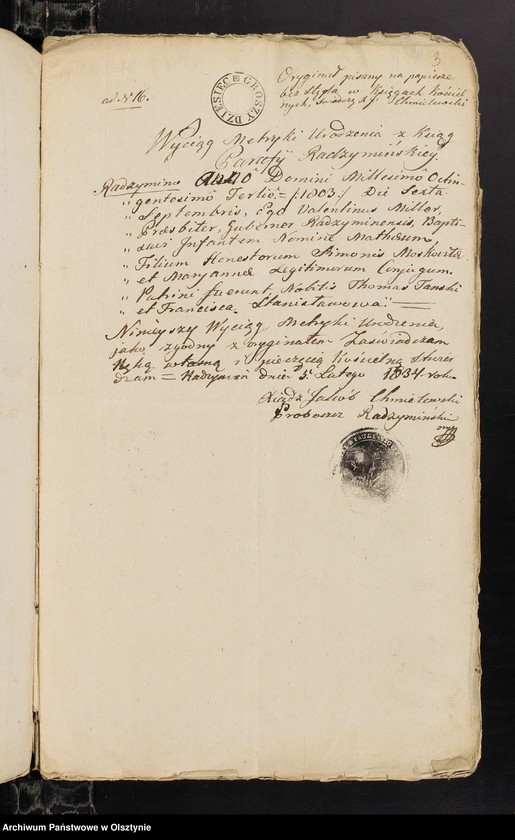 3
ad N 16.
DZIESIĘC GROSZY
Oryginał pisany na papierze
bez stępla w Księgach Kościel
nych, świadczę X J. Chmielewski
Wyciąg Metryki Urodzenia z Ksiąg
Parafij Radzymińskiéy
Radzymino Anno Domini Millesimo Octin-
„ gentesimo Tertio = /:1803:/ Die Sexta
„ Septembris, Ego Valentinus Miller,
„ Præsbiter, Radzyminensis, Bapti-
„ Infantem Nomine Mathæum,
„ Filium Honestorum Simonis
„ et Maryannæ Legitimorum Conjugum.
„ Patrini fuerunt, Nobilis Thomas Tanski
„ et Francisca Stanisławowa. =
Ninieyszy Wyciąg Metryki Urodzenia,
jako zgodny z oryginałem Zaświadczam
Ręką własną i pieczęcią Kościelną
= Radzymin dnia 5 Lutego 1834 roku
Xiądz Jakób Chmielewski
Proboszcz Radzymiński
mp
Archiwum Państwowe w Olsztynie